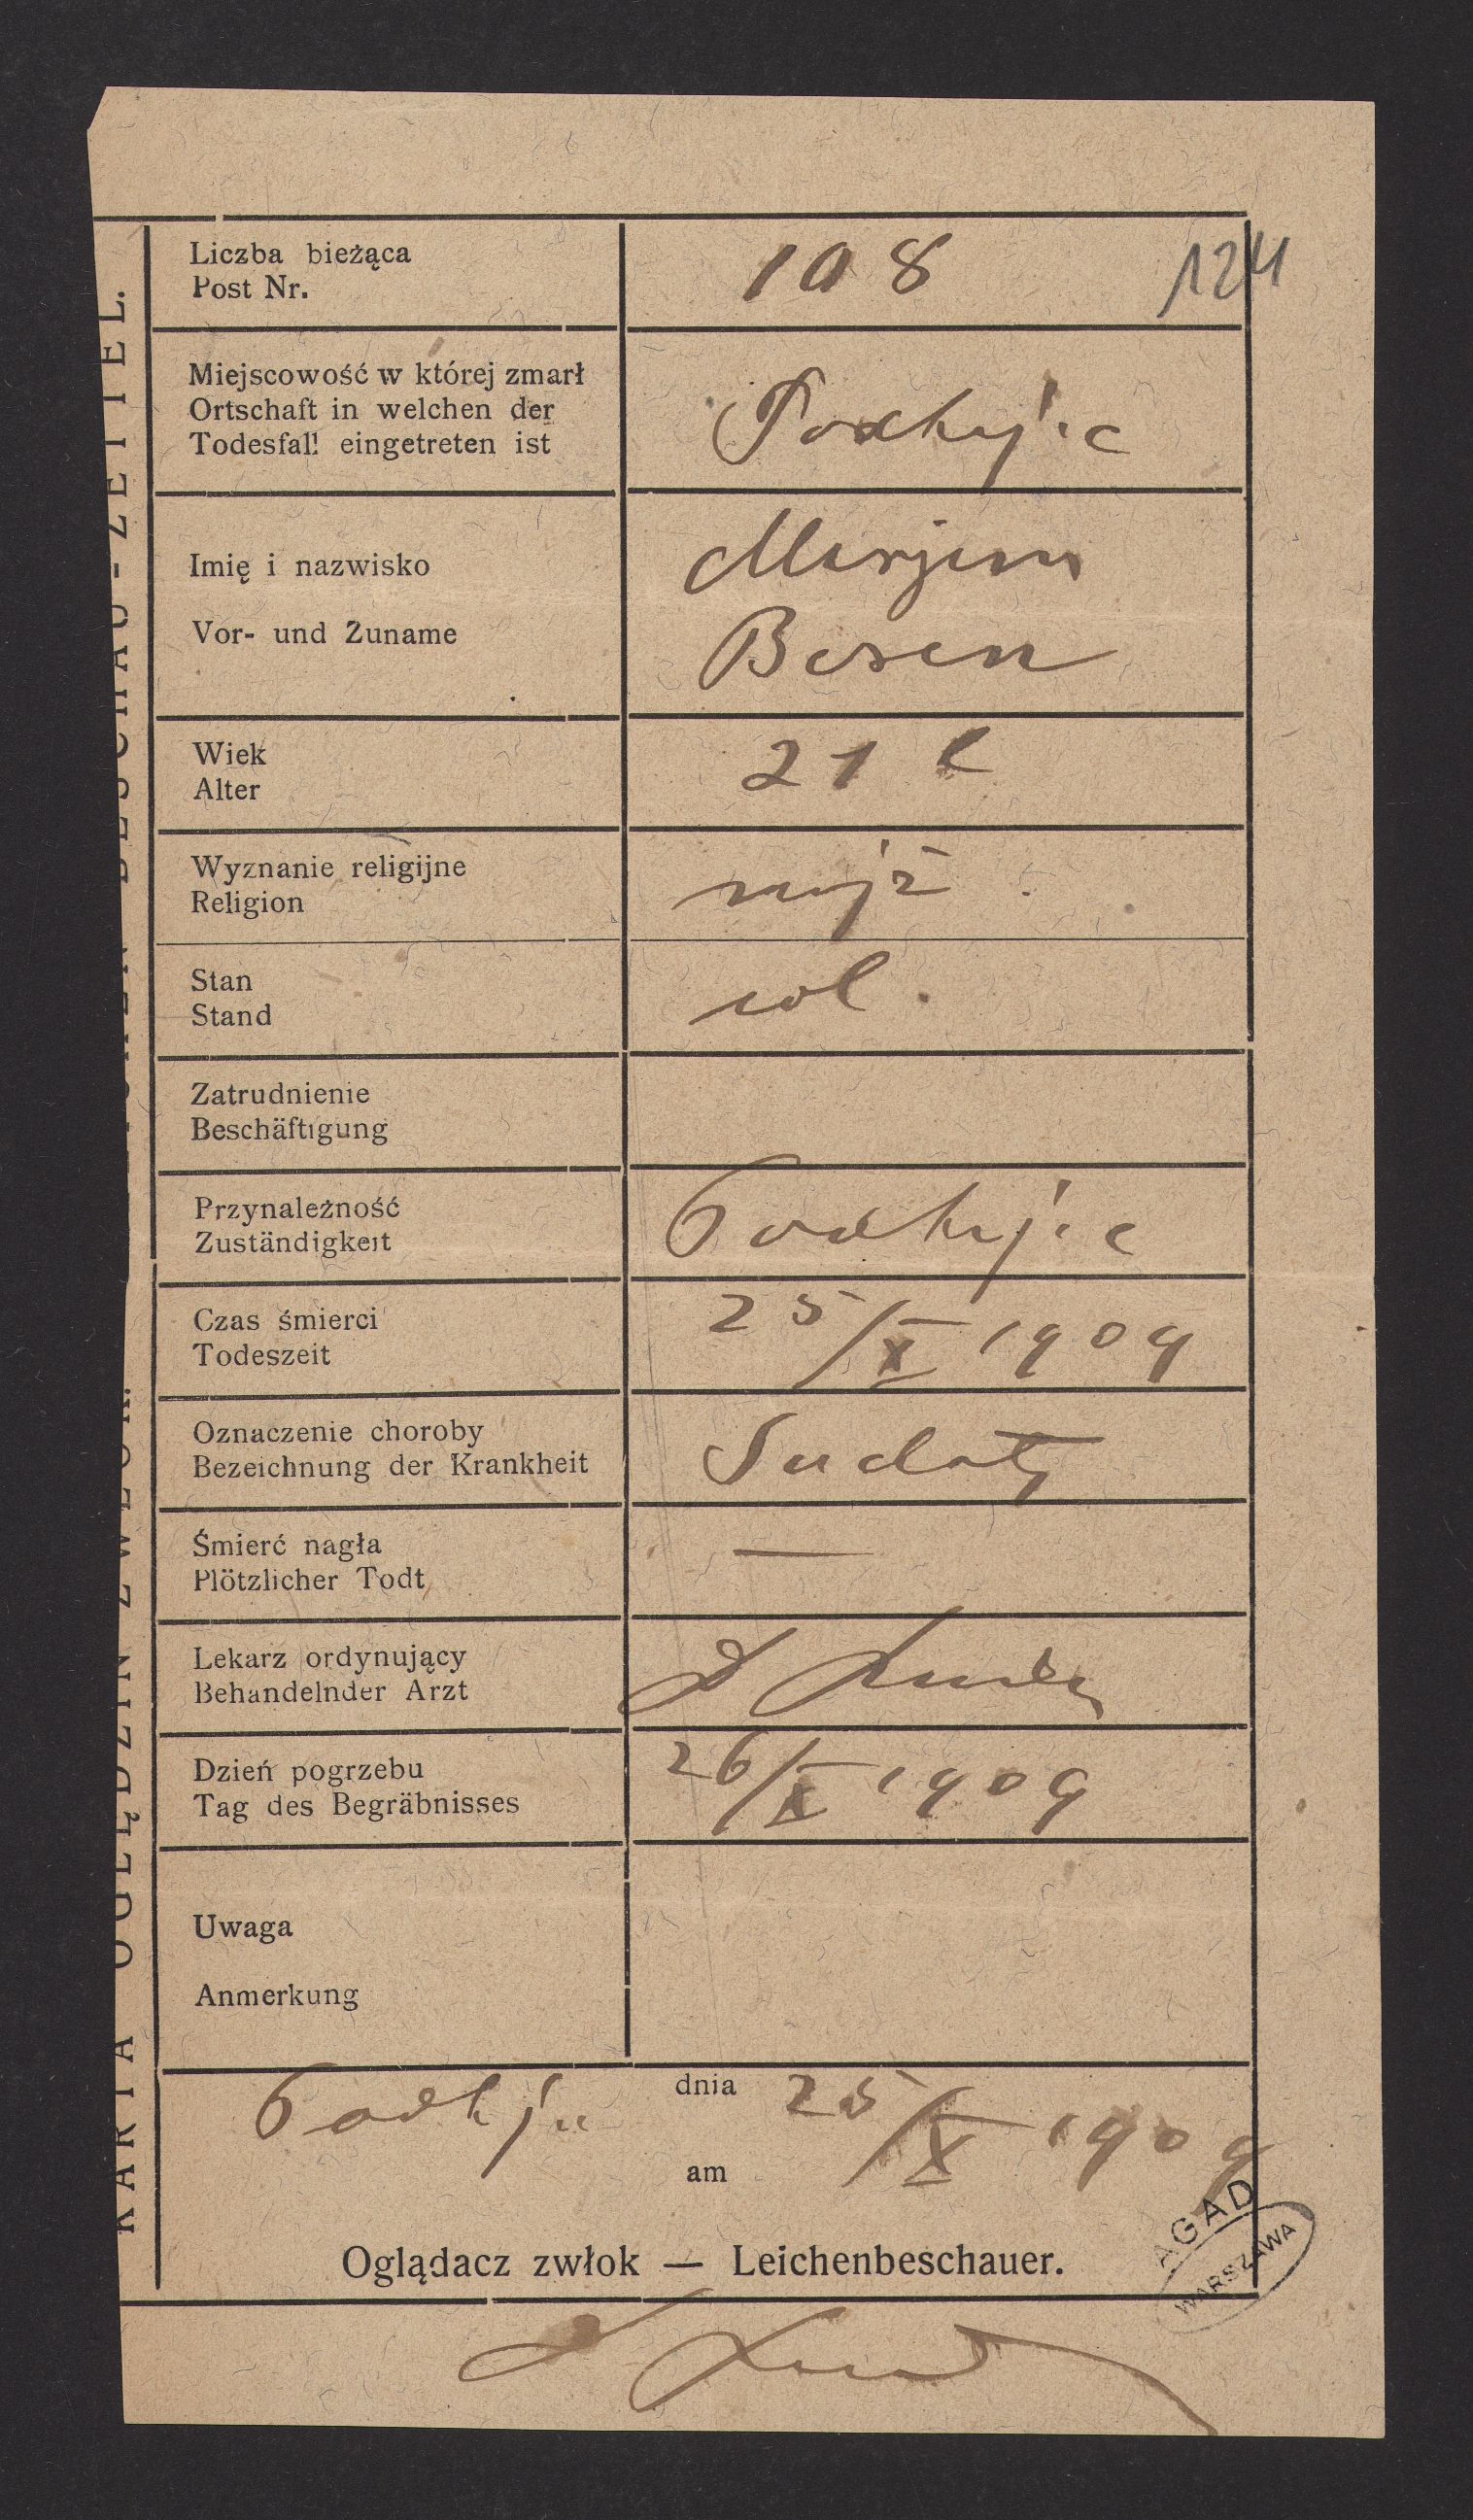 KARTA OGLĘDZIN ZWŁOK. BESCHAU-ZETTEL.
Liczba bieżąca
Post Nr.
108
124
Miejscowość w której zmarł
Ortschaft in welchen der
Todesfall eingetreten ist
Podhajce
Imię i nazwisko
Vor- und Zuname
Mirjem
Wiek
Alter
21 l
Wyznanie religijne
Religion
mojż.
Stan
Stand
wol.
Zatrudnienie
Beschäftigung
Przynależność
Zuständigkeit
Podhajce
Czas śmierci
Todeszeit
25/X 1909
Oznaczenie choroby
Bezeichnung der Krankheit
Suchoty
Śmierć nagła
Plötzlicher Todt
—
Lekarz ordynujący
Behandelnder Arzt
Dzień pogrzebu
Tag des Begräbnisses
26/X 1909
Uwaga
Anmerkung
Podhajce dnia 25/X 1909
am
AGAD
WARSZAWA
Oglądacz zwłok — Leichenbeschauer.